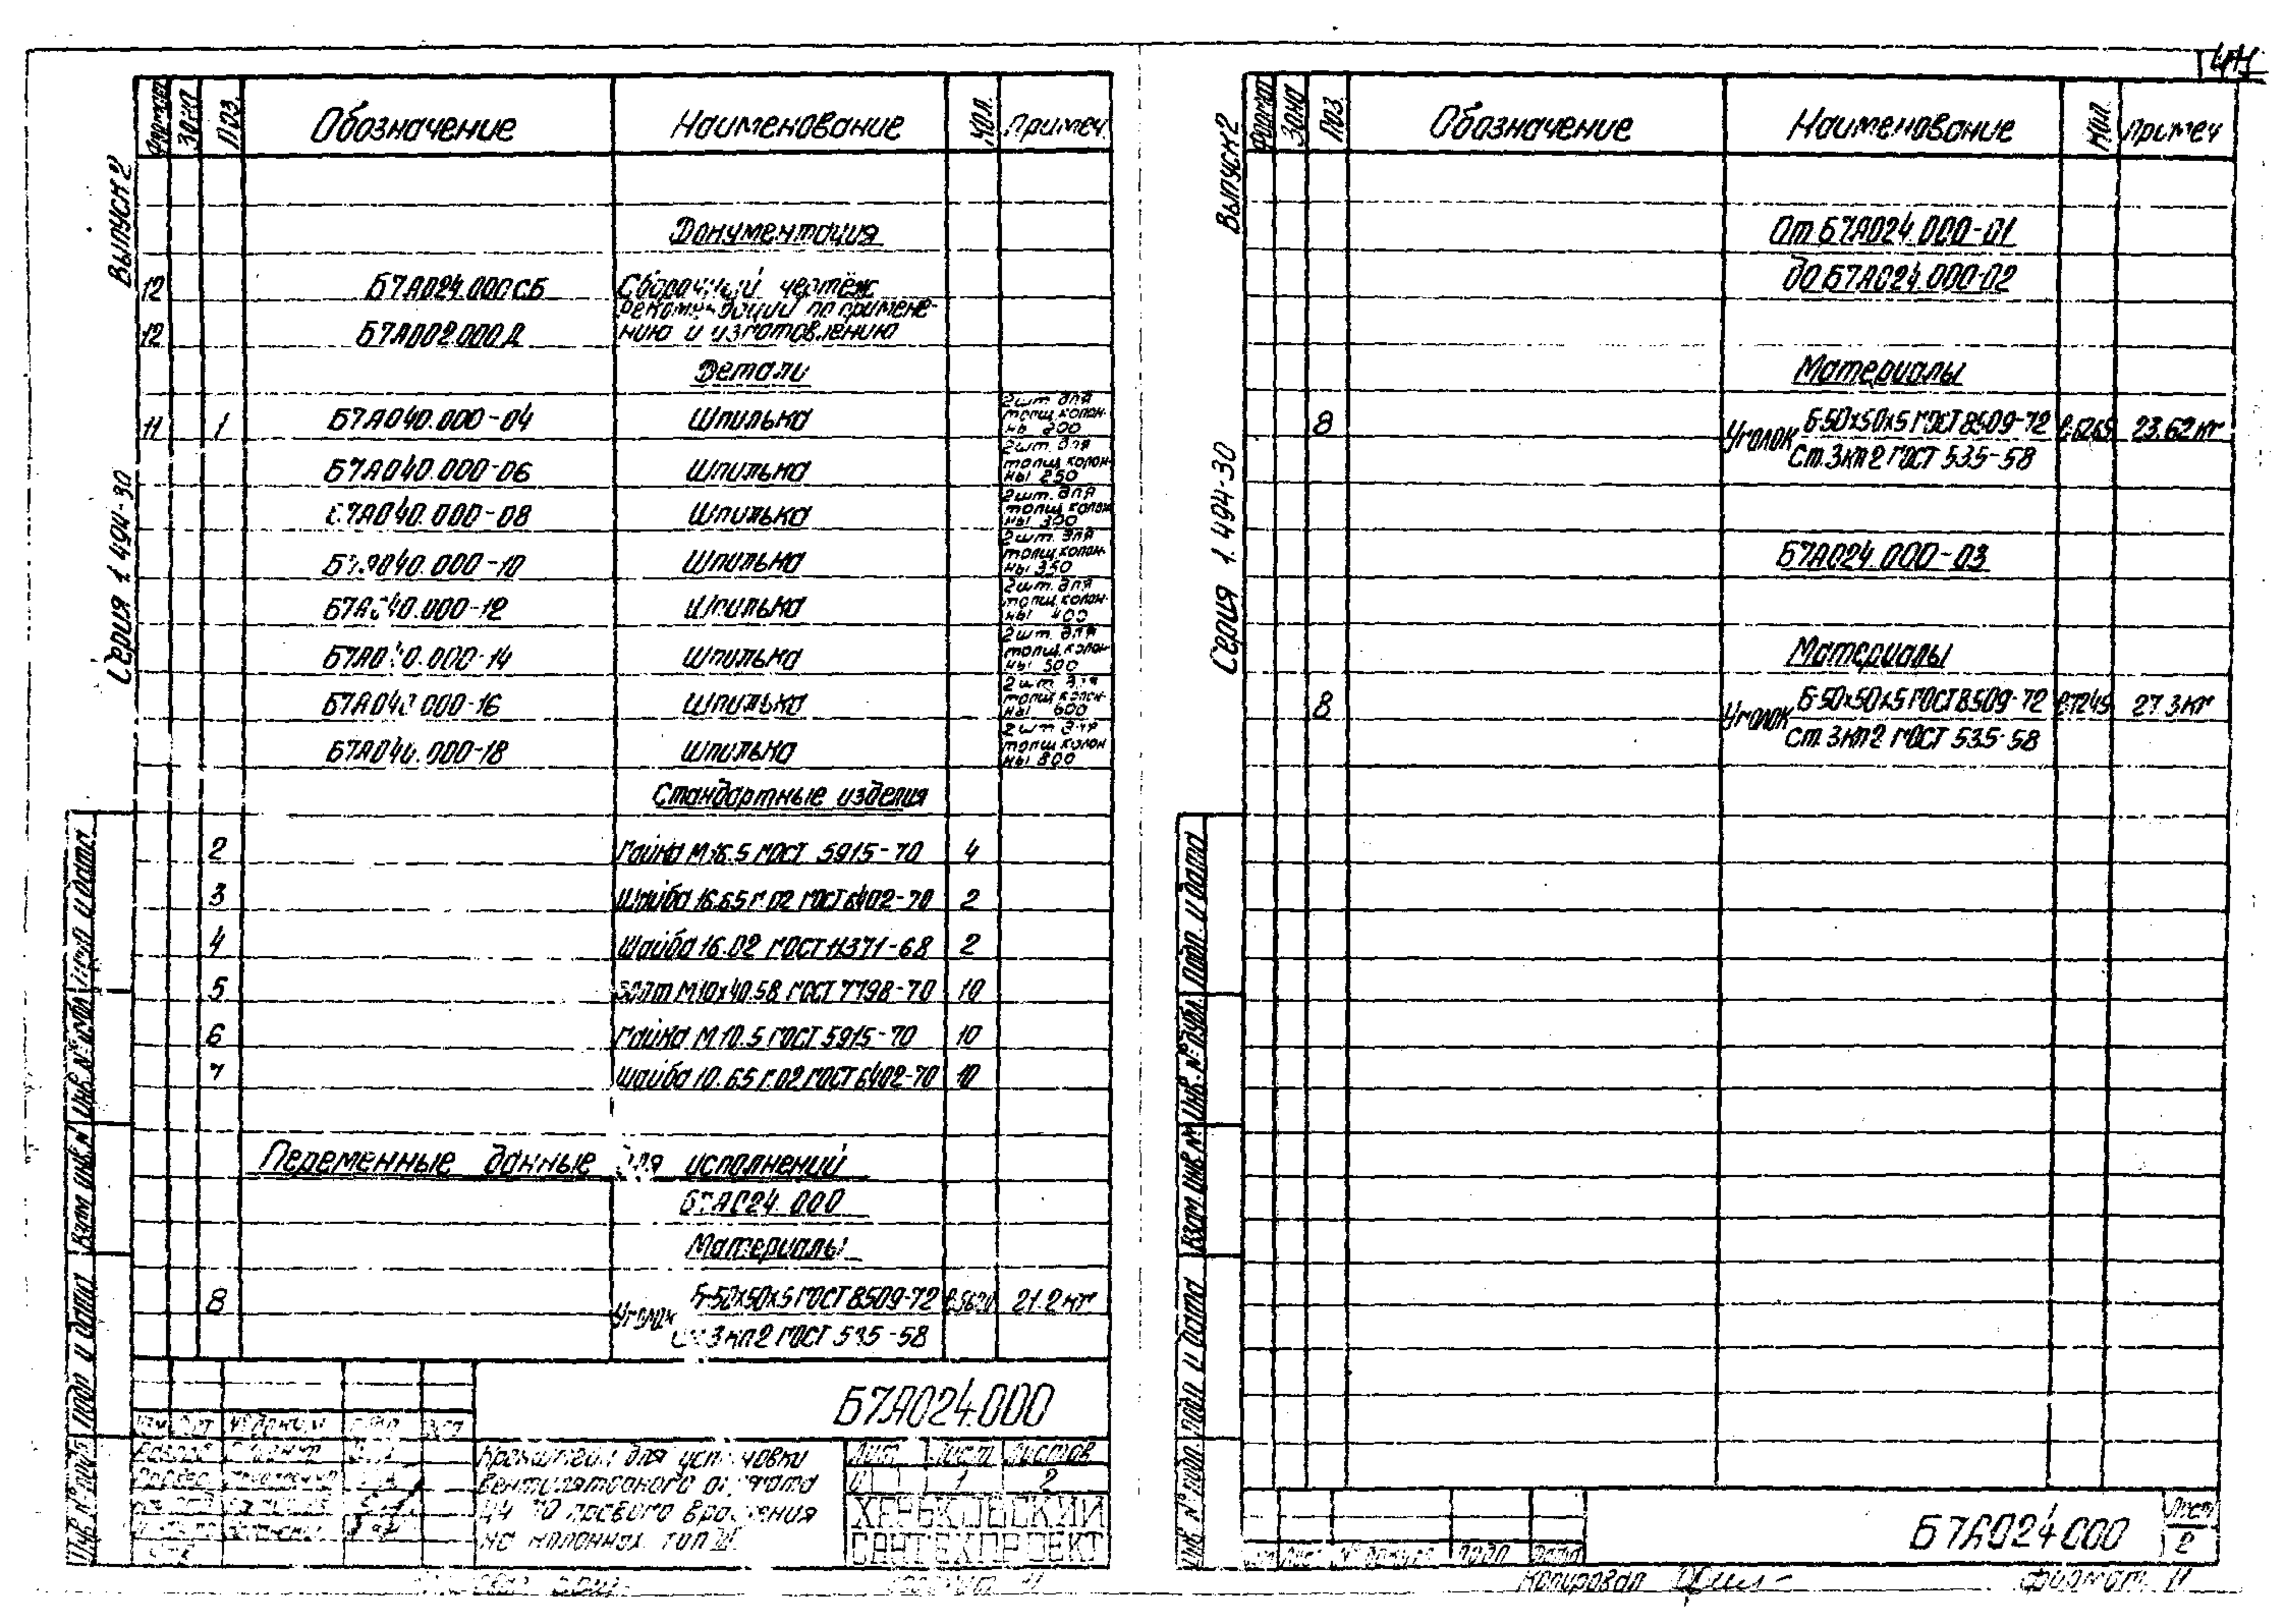 Выпуск 2
Серия 1.494-30
Формат Зона Поз. Обозначение Наименование Кол. Примеч.
Документация
12 Б7А024.000СБ Сборочный чертёж
Рекомендации по приме-
12 Б7А002.000Д нению и изготовлению
Детали
11 1 Б7А040.000-04 Шпилька 2шт. для толщ. колон-ны 200
Б7А040.000-06 Шпилька 2шт. для толщ. колон-ны 250
Б7А040.000-08 Шпилька 2шт. для толщ. колон-ны 300
Б7А040.000-10 Шпилька 2шт. для толщ. колон-ны 350
Б7А040.000-12 Шпилька 2шт. для толщ. колон-ны 400
Б7А040.000-14 Шпилька 2шт. для толщ. колон-ны 500
Б7А040.000-16 Шпилька 2шт. для толщ. колон-ны 600
Б7А040.000-18 Шпилька 2шт. для толщ. колон-ны 800
Стандартные изделия
2 Гайка М16.5 ГОСТ 5915-70 4
3 Шайба 16.65Г.02 ГОСТ 6402-70 2
4 Шайба 16.02 ГОСТ 11371-68 2
5 Болт М10х40.58 ГОСТ 7798-70 10
6 Гайка М10.5 ГОСТ 5915-70 10
7 Шайба 10.65Г.02 ГОСТ 6402-70 10
Переменные данные для исполнений
Б7А024.000
Материалы
8 Уголок Б-50х50х5 ГОСТ 8509-72 21.2кг
Ст.3кп2 ГОСТ 535-58
Б7А024.000
Кронштейн для установки
вентиляторного агрегата
Ц4-70 правого вращения
на колоннах тип
Лит. Лист Листов
1 2
ХАРЬКОВСКИЙ
САНТЕХПРОЕКТ
Инв. № подл. Подп. и дата Взам. инв. № Инв. № дубл. Подп. и дата
Выпуск 2
Серия 1.494-30
Формат Зона Поз. Обозначение Наименование Кол. Примеч
От Б7А024.000-01
до Б7А024.000-02
Материалы
8 Уголок Б-50х50х5 ГОСТ 8509-72 23.62кг
Ст.3кп2 ГОСТ 535-58
Б7А024.000-03
Материалы
8 Уголок Б-50х50х5 ГОСТ 8509-72 27.3кг
Ст.3кп2 ГОСТ 535-58
Инв. № подл. Подп. и дата Взам. инв. № Инв. № дубл. Подп. и дата
Б7А024.000
Лист
2
Копировал
Формат 11